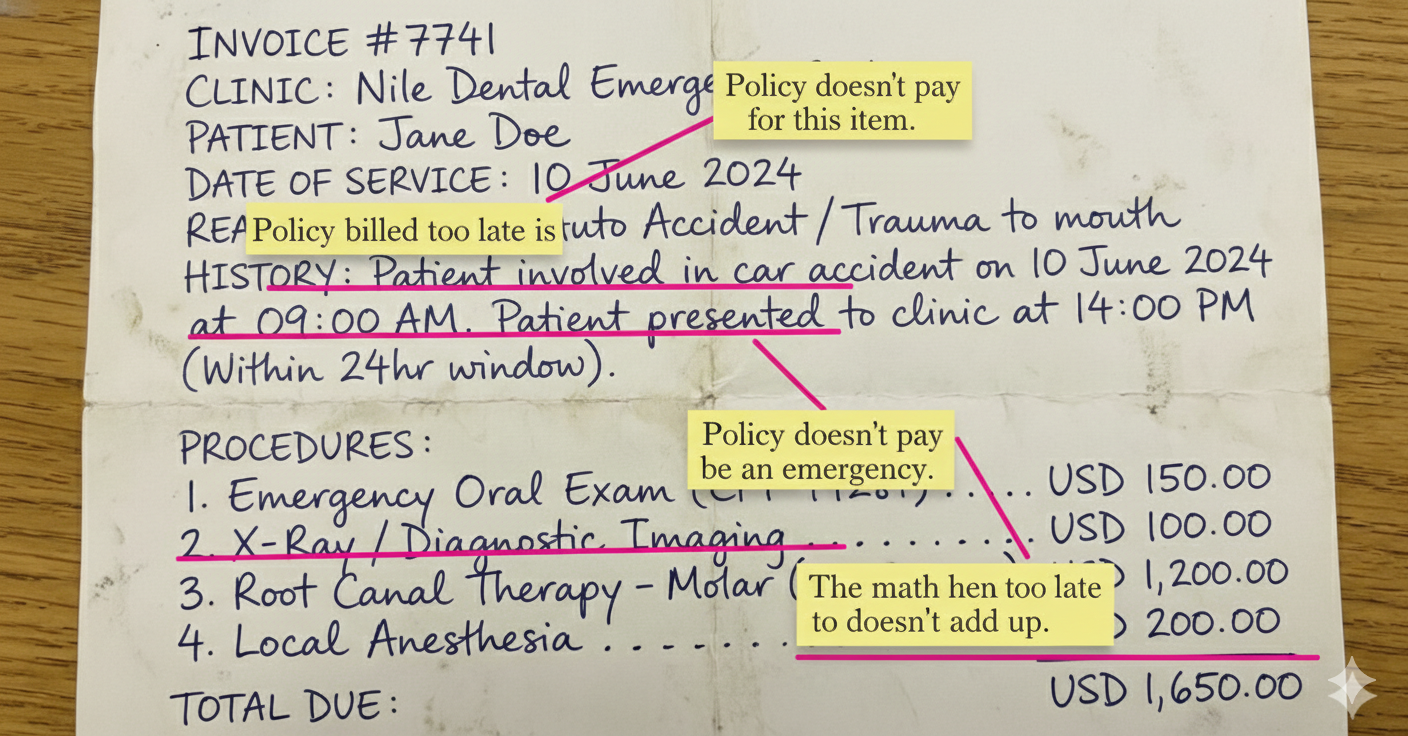 INVOICE #7741
CLINIC: Nile Dental
Policy doesn't pay
for this item.
PATIENT: Jane Doe
DATE OF SERVICE: 10 June 2024
Policy billed too late is
Accident / Trauma to mouth
HISTORY: Patient involved in car accident on 10 June 2024
at 09:00 AM. Patient presented to clinic at 14:00 PM
(Within 24hr window).
Policy doesn't pay
be an emergency.
PROCEDURES:
1. Emergency Oral Exam ..... USD 150.00
2. X-Ray / Diagnostic Imaging .......... USD 100.00
3. Root Canal Therapy - Molar 1,200.00
The math hen too late
to doesn't add up.
4. Local Anesthesia ....... 200.00
TOTAL DUE: USD 1,650.00